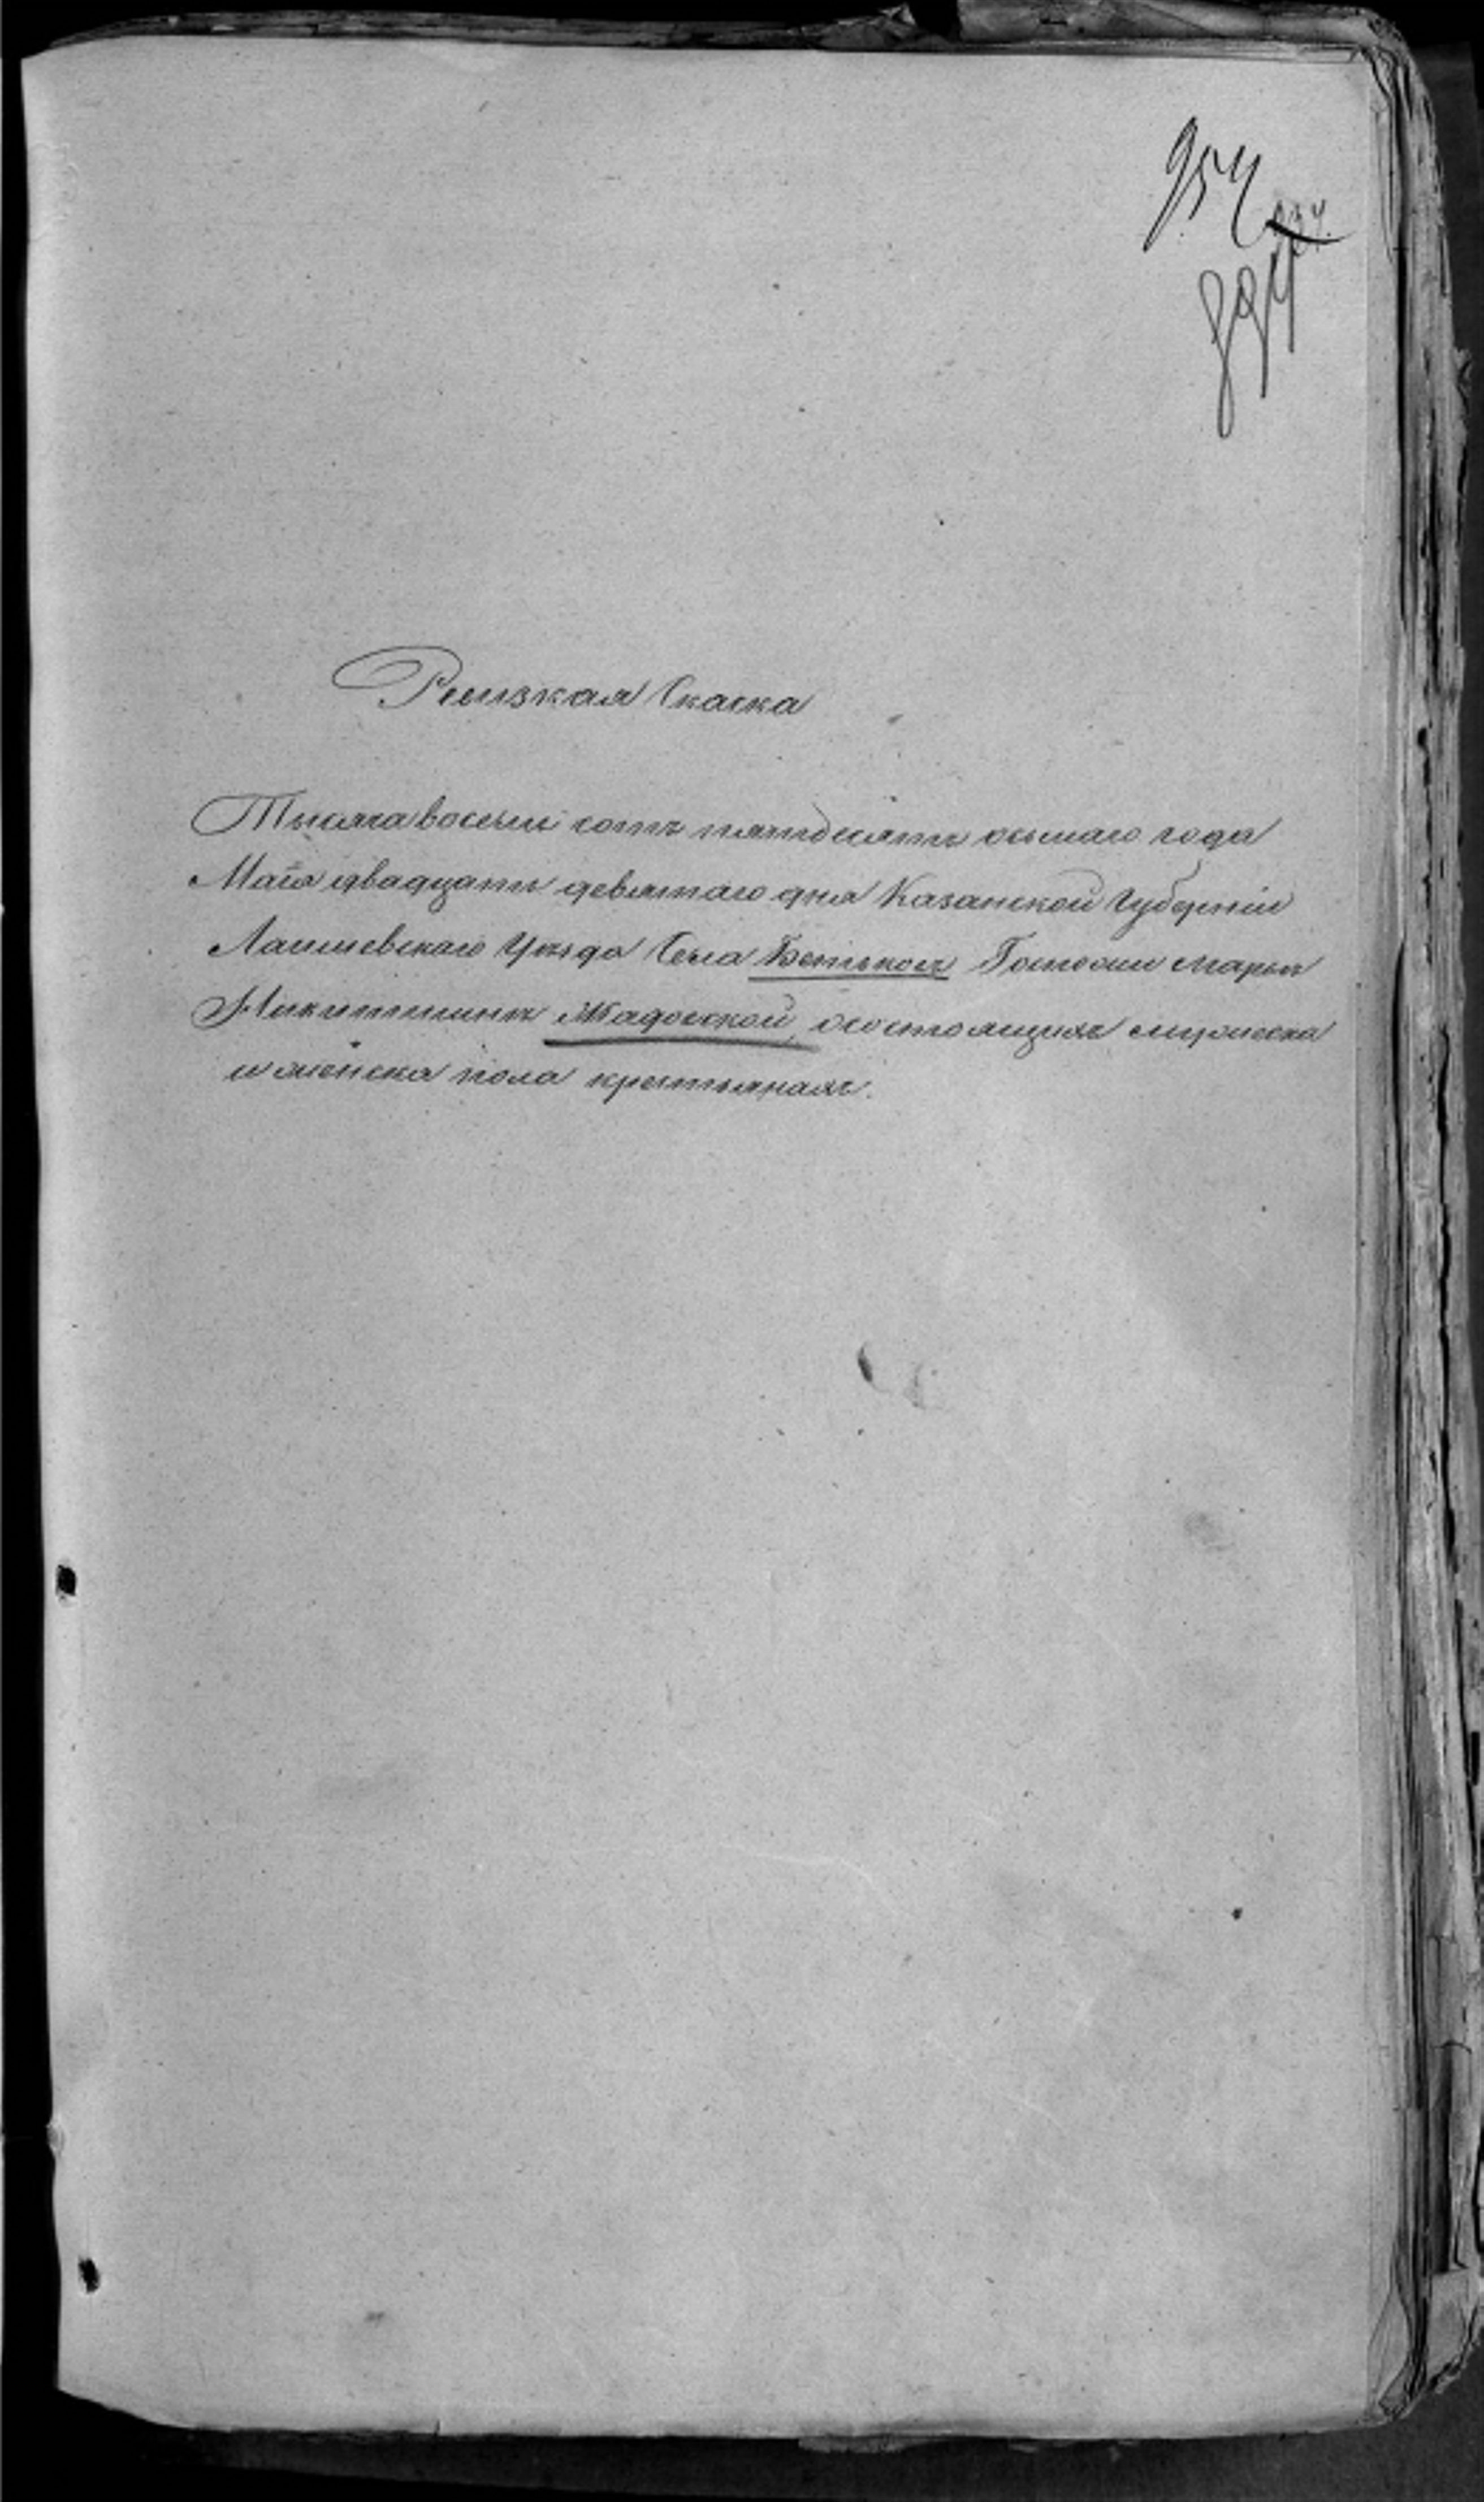 954
894
Ревизкая Скаска
Тысяча восемь сотъ пятдесятъ осьмаго года
Маія двадцать девятаго дня Казанской Губерніи
Лаишевскаго Уѣзда Села Бетьковъ Госпожи Марьи
Никитишны Жадовской, осостоящихъ мужеска
и женска пола крестьянахъ.